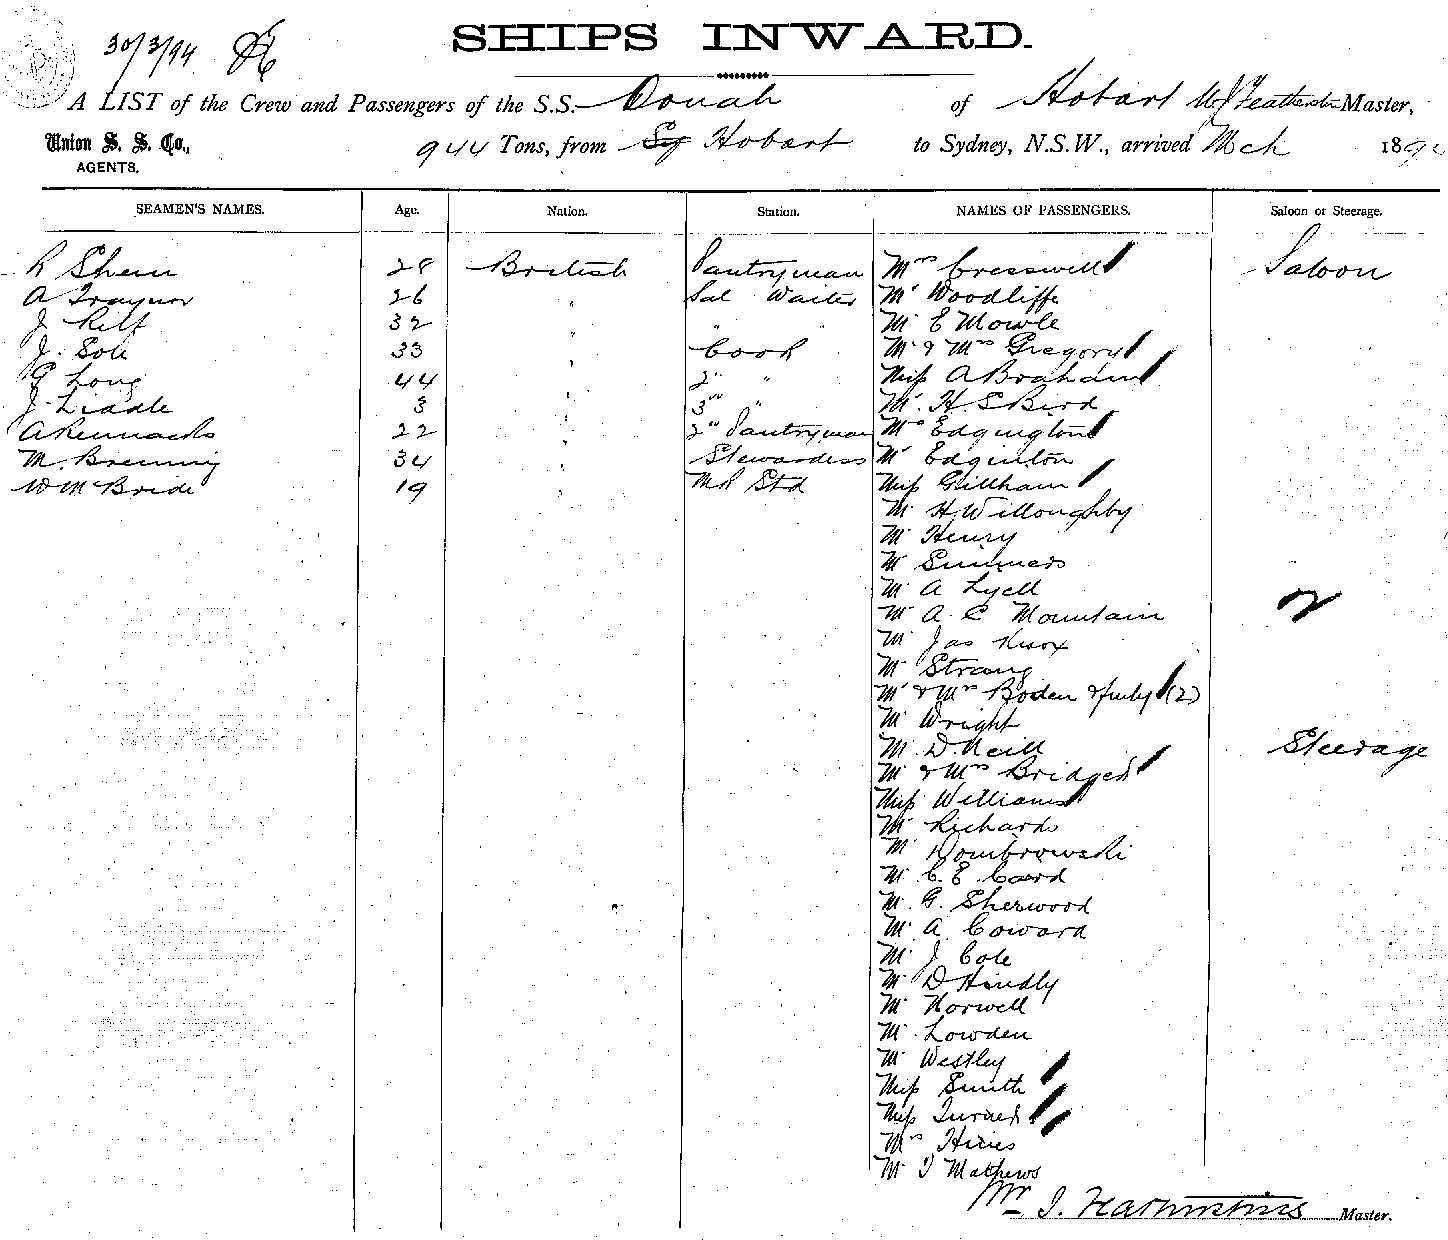 30/3/94
SHIPS INWARD.
A LIST of the Crew and Passengers of the S.S. Oonah of Hobart Master,
Union S. S. Co.,
AGENTS.
944 Tons, from Sy Hobart to Sydney, N.S.W., arrived Mch 189
SEAMEN'S NAMES. Age. Nation. Station. NAMES OF PASSENGERS. Saloon or Steerage.
R Shem 28 British Pantryman Mrs Cresswell Saloon
A Traynor 26 " Sal Waiter Mr Woodliffe
J. Relf 32 " " " Mr E Mowle
J. Sole 33 " Cook Mr & Mrs Gregory
G Long 44 " 2nd " Miss A Braham
J. Liddle 3 " 3rd " Mr. H. S Bird
A 22 " 2nd Pantryman Mrs Edgington
M. 34 " Stewardess Mr Edginton
W McBride 19 " Std Miss Gillham
Mr H. Willoughby
Mr Henry
Mr Summers
Mr A Lyell
Mr A. C Mountain
Mr Jas Knox
Mr Strang
Mr & Mrs Boden & fmly (2)
Mr Wright
Mr D. Neill Steerage
Mr & Mrs Bridges
Miss Williams
Mr Richards
Mr Dombrowski
Mr C. E Card
Mr G. Sherwood
Mr A Coward
Mr J Cole
Mr D Hindly
Mr Norwell
Mr Lowden
Mr Westley
Miss Smith
Miss Turner
Mrs Hines
Mr T Mathews
Master.